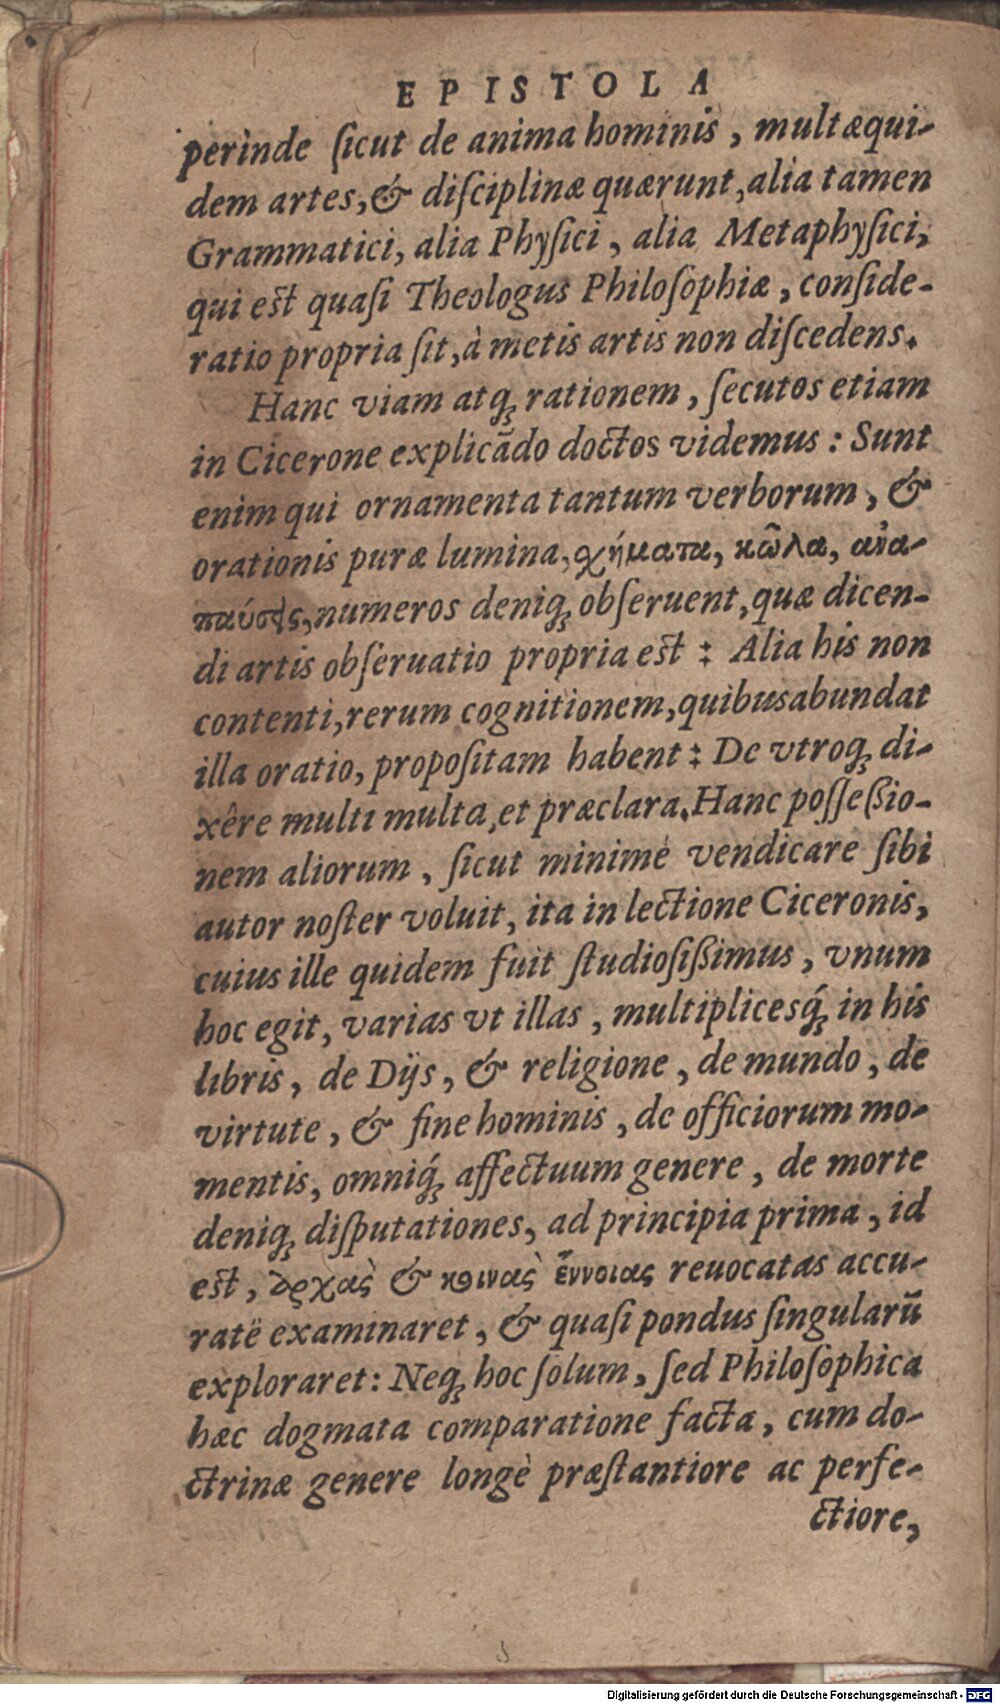 EPISTOLA
perinde ſicut de anima hominis, multæ qui-
dem artes, & diſciplinæ quærunt, alia tamen
Grammatici, alia Phyſici, alia Metaphyſici,
qui eſt quaſi Theologus Philoſophiæ, conſide-
ratio propria ſit, à metis artis non diſcedens.
Hanc viam atq́; rationem, ſecutos etiam
in Cicerone explicãdo doctos videmus: Sunt
enim qui ornamenta tantum verborum, &
orationis puræ lumina, σχήματα, κῶλα, ἀνα-
παύσεις, numeros deniq; obſeruent, quæ dicen-
di artis obſeruatio propria eſt: Alia his non
contenti, rerum cognitionem, quibus abundat
illa oratio, propoſitam habent: De vtroq; di-
xêre multi multa, et præclara. Hanc poſſeßio-
nem aliorum, ſicut minimè vendicare ſibi
autor noſter voluit, ita in lectione Ciceronis,
cuius ille quidem fuit ſtudioſißimus, vnum
hoc egit, varias vt illas, multiplicesq́; in his
libris, de Dijs, & religione, de mundo, de
virtute, & fine hominis, de officiorum mo-
mentis, omniq́; affectuum genere, de morte
deniq; diſputationes, ad principia prima, id
eſt, ἀρχὰς & κοινὰς ἔννοιας reuocatas accu-
ratè examinaret, & quaſi pondus ſingularũ
exploraret: Neq; hoc ſolum, ſed Philoſophica
hæc dogmata comparatione facta, cum do-
ctrinæ genere longè præſtantiore ac perfe-
ctiore,
Digitalisierung gefördert durch die Deutsche Forschungsgemeinschaft - DFG